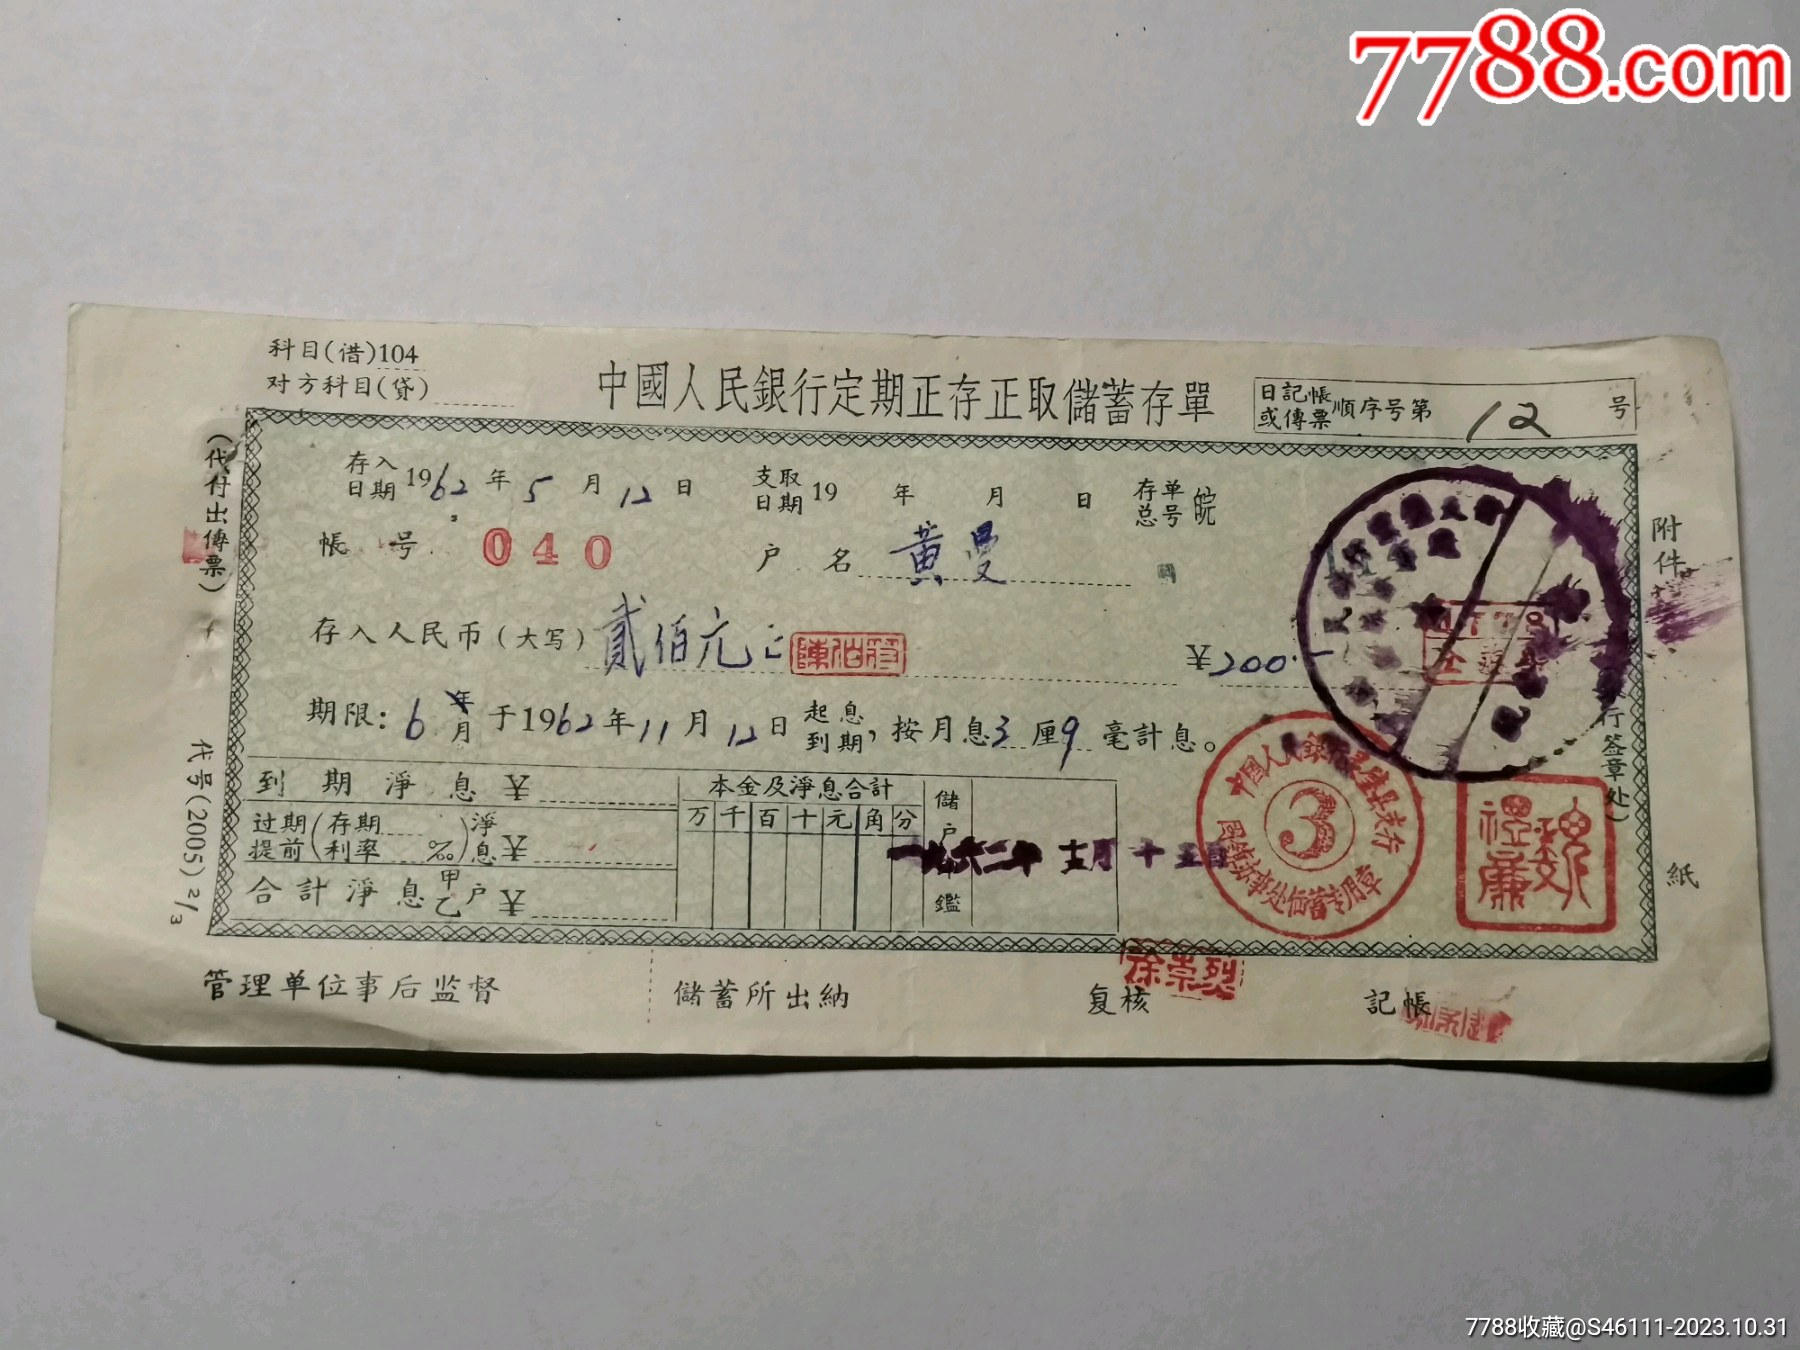 7788.com
科目(借)104
对方科目(贷)
中國人民銀行定期正存正取儲蓄存單
日記帳
或傳票
順序号第 12 号
(代付出傳票)
代号(2005) 2/3
存入日期 1962年5月12日
支取日期 19 年 月 日
存单总号 皖
帳号 040
户名 黄曼
存入人民币(大写) 貳伯元正
陳伯符
¥200.一
期限: 6 年月 于1962年11月12日 起息到期, 按月息3厘9毫計息。
到期淨息 ¥
过期提前(存期 利率 ‰)淨息 ¥
合計淨息 甲乙户 ¥
本金及淨息合計
万 千 百 十 元 角 分
儲户 鑑
一九六二年 十二月 十五日
3
行签章处)
附件
紙
管理单位事后监督
儲蓄所出納
复核
徐崇烈
記帳
7788收藏@S46111-2023.10.31